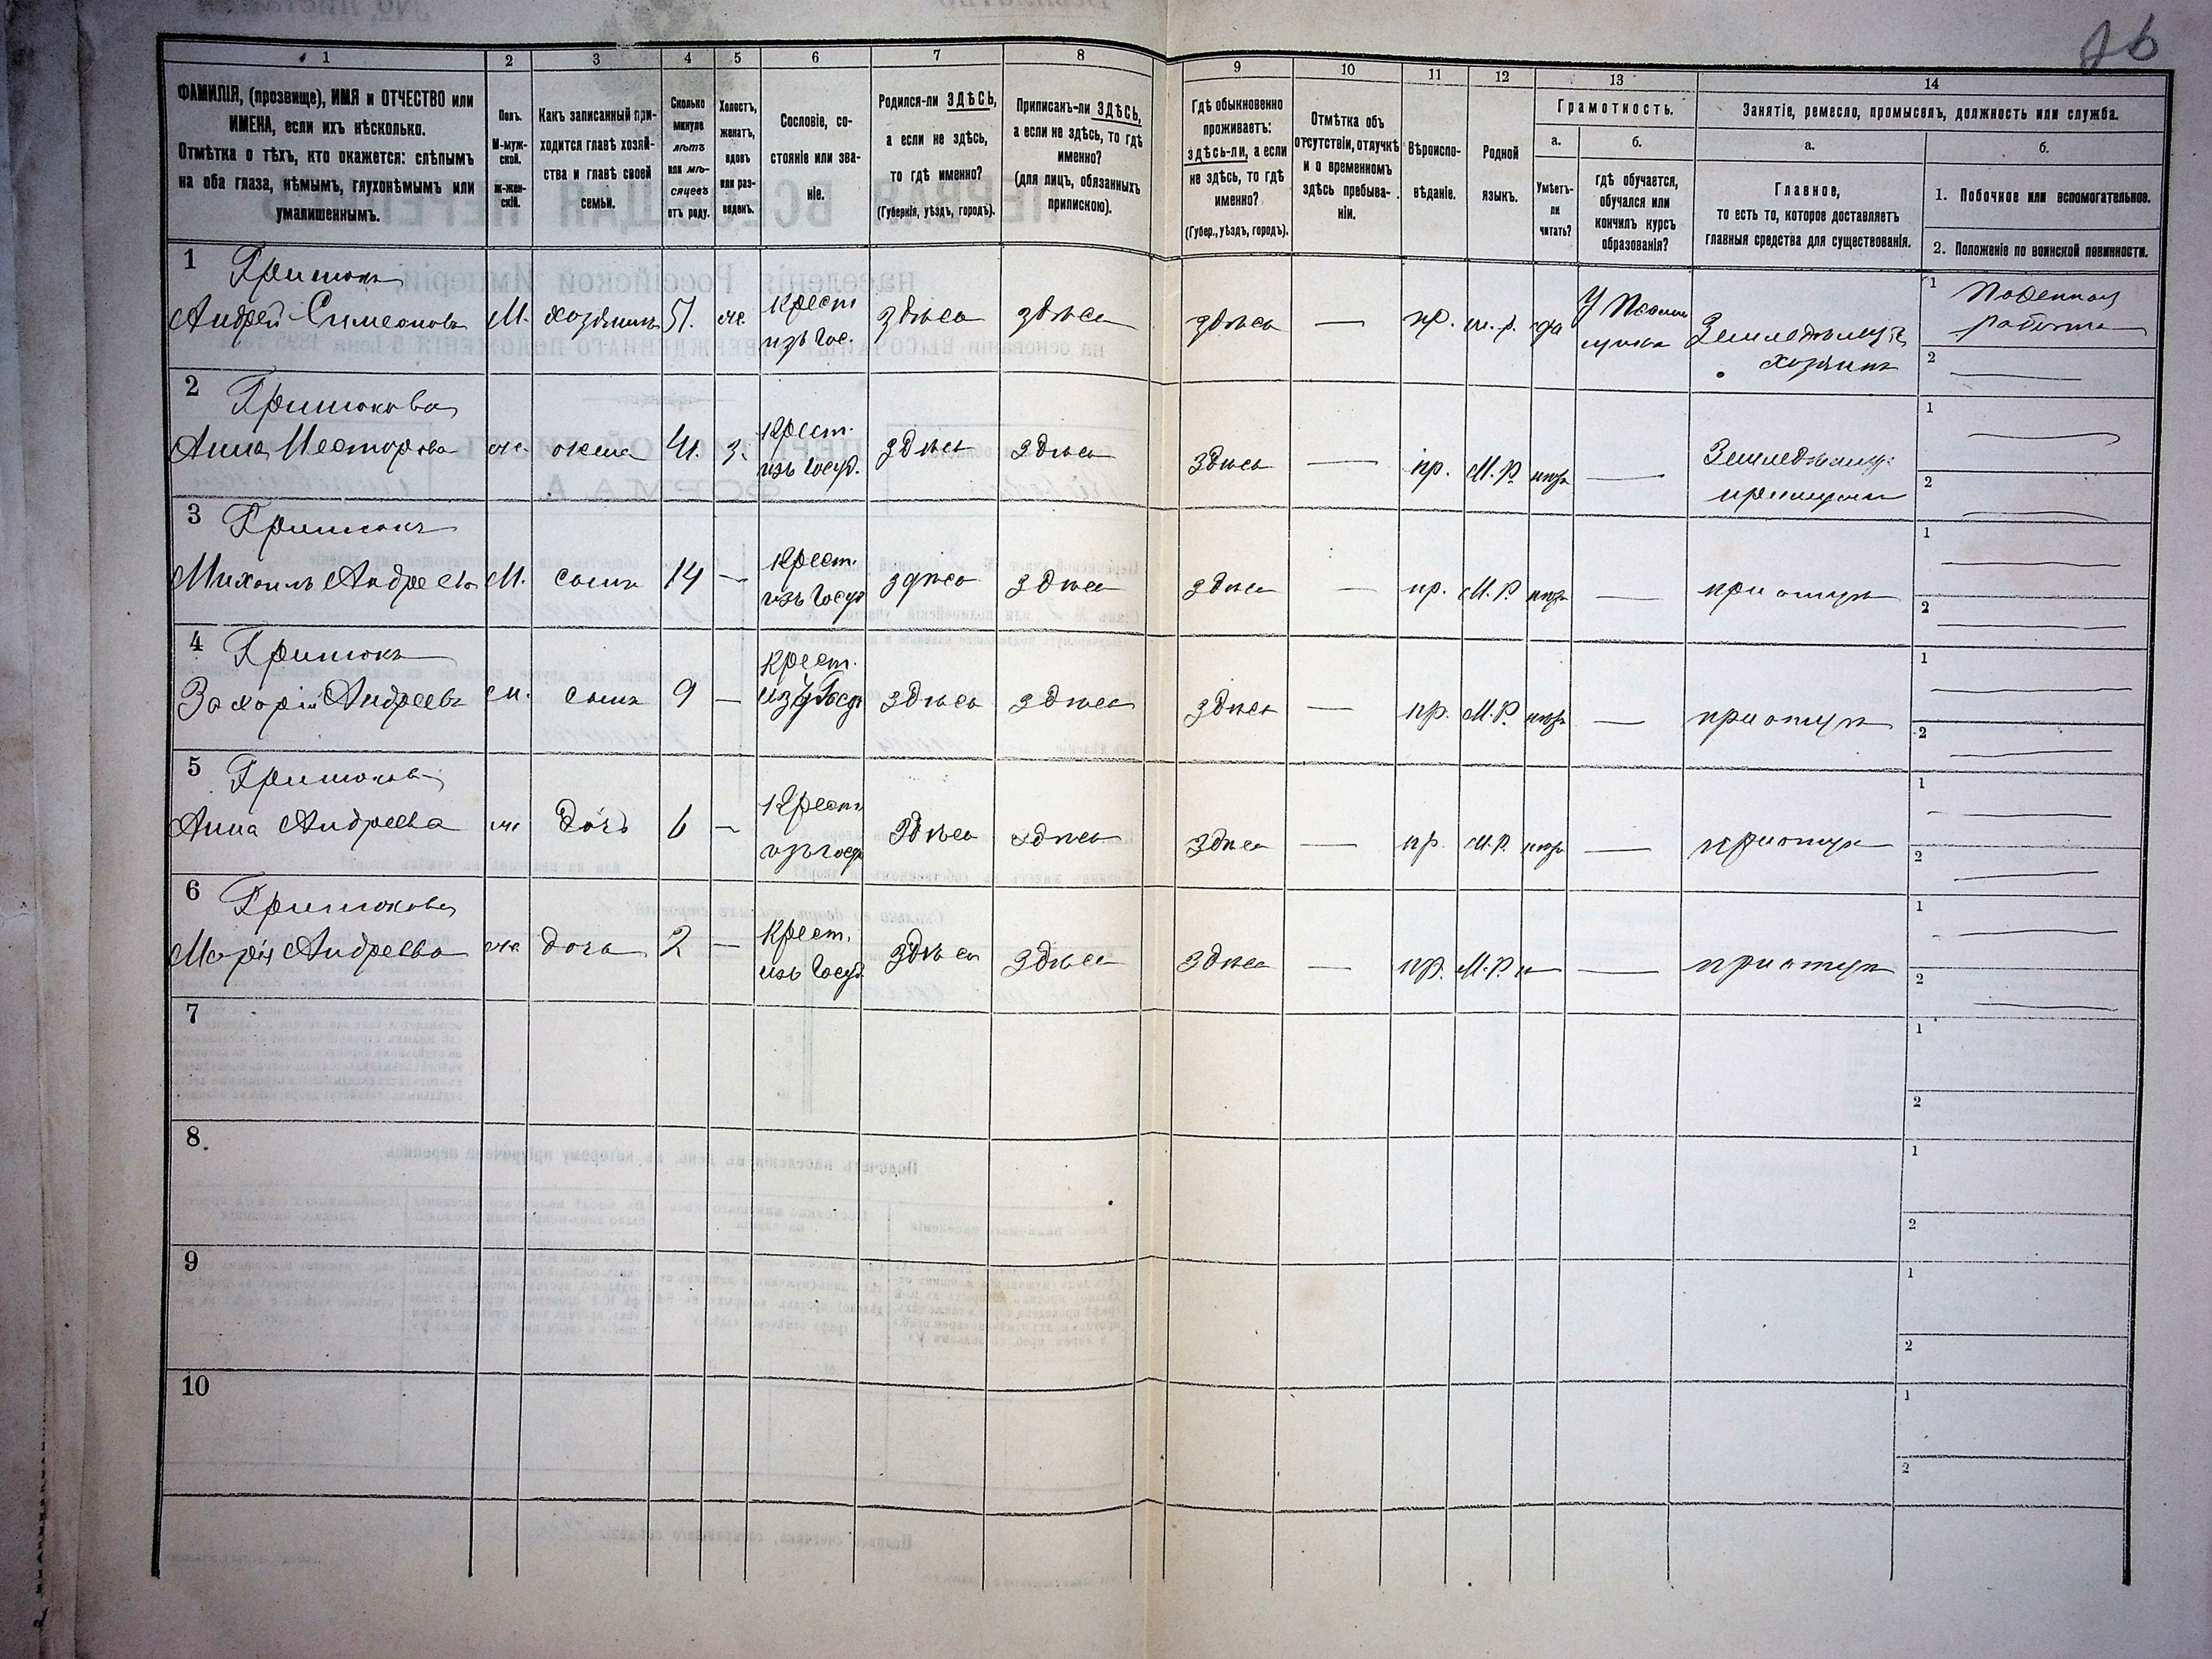 76
1
2
3
4
5
6
7
8
9
10
11
12
13
14
ФАМИЛІЯ, (прозвище), ИМЯ и ОТЧЕСТВО или
ИМЕНА, если ихъ нѣсколько.
Отмѣтка о тѣхъ, кто окажется: слѣпымъ
на оба глаза, нѣмымъ, глухонѣмымъ или
умалишеннымъ.
Полъ.
М-муж-
ской.
Ж-жен-
скій.
Какъ записанный при-
ходится главѣ хозяй-
ства и главѣ своей
семьи.
Сколько
минуло
лѣтъ
или мѣ-
сяцевъ
отъ роду.
Холостъ,
женатъ,
вдовъ
или раз-
веденъ.
Сословіе, со-
стояніе или зва-
ніе.
Родился-ли ЗДѢСЬ,
а если не здѣсь,
то гдѣ именно?
(Губернія, уѣздъ, городъ).
Приписанъ-ли ЗДѢСЬ,
а если не здѣсь, то гдѣ
именно?
(для лицъ, обязанныхъ
припискою).
Гдѣ обыкновенно
проживаетъ:
здѣсь-ли, а если
не здѣсь, то гдѣ
именно?
(Губер., уѣздъ, городъ).
Отмѣтка объ
отсутствіи, отлучкѣ
и о временномъ
здѣсь пребыва-
ніи.
Вѣроиспо-
вѣданіе.
Родной
языкъ.
Грамотность.
а.
Умѣетъ-
ли
читать?
б.
гдѣ обучается,
обучался или
кончилъ курсъ
образованія?
Занятіе, ремесло, промыселъ, должность или служба.
а.
Главное,
то есть то, которое доставляетъ
главныя средства для существованія.
б.
1. Побочное или вспомогательное.
2. Положеніе по воинской повинности.
1 Гритокъ
Андрей Симеоновъ М. хозяинъ 51. же. Крест изъ Гос. здѣсь здѣсь здѣсь — пр. м.р. да Земледѣлецъ хозяинъ
1 Поденная работа
2 —
2 Гритокова
Анна Несторова же. жена 41. з. Крест. изъ Госуд. здѣсь здѣсь здѣсь — пр. М.Р. —
1 —
2 —
3 Гритокъ
Михаилъ Андреевъ М. сынъ 14 — Крест. изъ Госуд здѣсь здѣсь здѣсь — пр. М.Р. — при отцѣ
1 —
2 —
4 Гритокъ
Захарій Андреевъ м. сынъ 9 — Крест. изъ Госуд здѣсь здѣсь здѣсь — пр. М.Р. — при отцѣ
1 —
2 —
5 Гритокова
Анна Андреева же дочь 6 — Крест изъ Госуд здѣсь здѣсь здѣсь — пр. М.Р. — при отцѣ
1 —
2 —
6 Гритокова
Марія Андреева же дочь 2 — Крест. изъ Госуд здѣсь здѣсь здѣсь — пр. М.Р. — при отцѣ
1 —
2 —
7
1
2
8
1
2
9
1
2
10
1
2